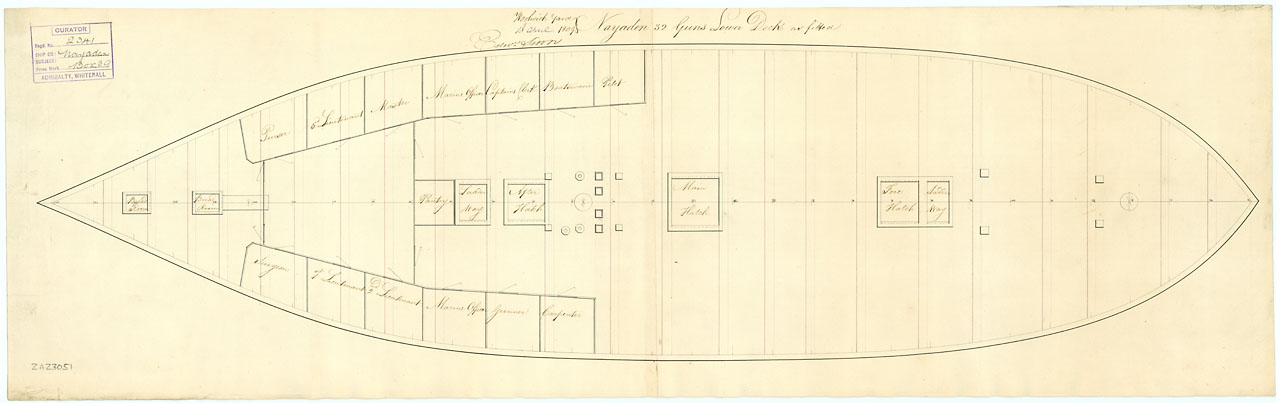 CURATOR
Regd. No. 2341
SHIP OR Nayaden
SUBJECT:
Press Mark Box 39
ADMIRALTY, WHITEHALL
Woolwich Yard
Nayaden 32 Guns Lower Deck as fitted
Purser
Lieutenant
Master
Marine Officer
Captains Clerk
Boatswain
Pilot
Bread Room
Bread Room
Pantry
Ladder Way
After Hatch
Main Hatch
Fore Hatch
Ladder Way
Surgeon
1st Lieutenant
2d Lieutenant
Marine Officer
Gunner
Carpenter
ZAZ3051